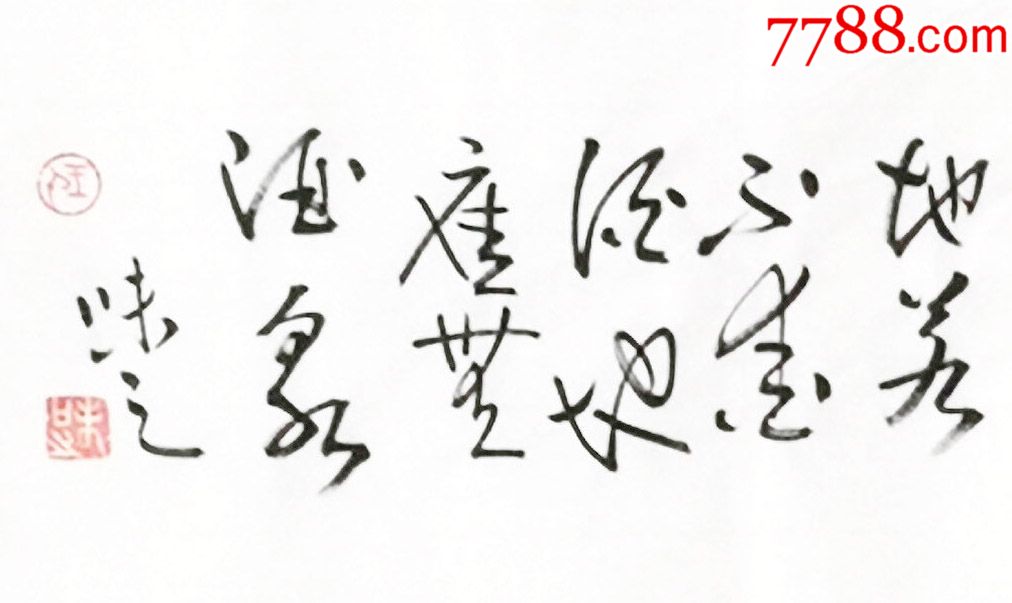 7788.com
地若
不愛
酒地
應無
酒泉
味之